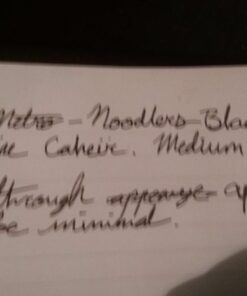 Metro - Noodlers Blac
ine Caheir. Medium
through appearge
be minimal.